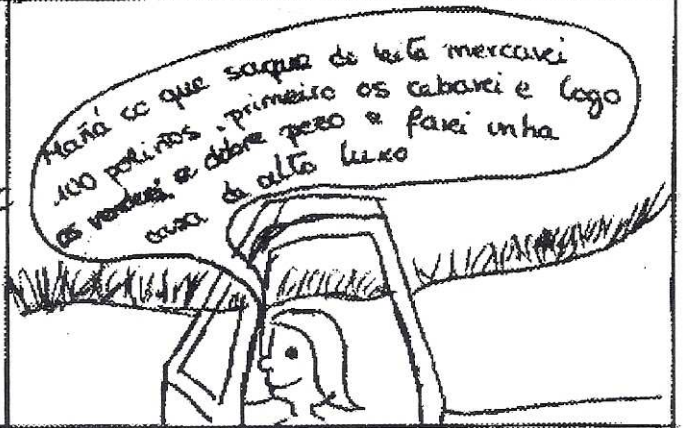 Mañá co que saque do leite mercarei
100 poliños, primeiro os cebarei e logo
os venderei a dobre pezo e farei unha
casa de alto luxo